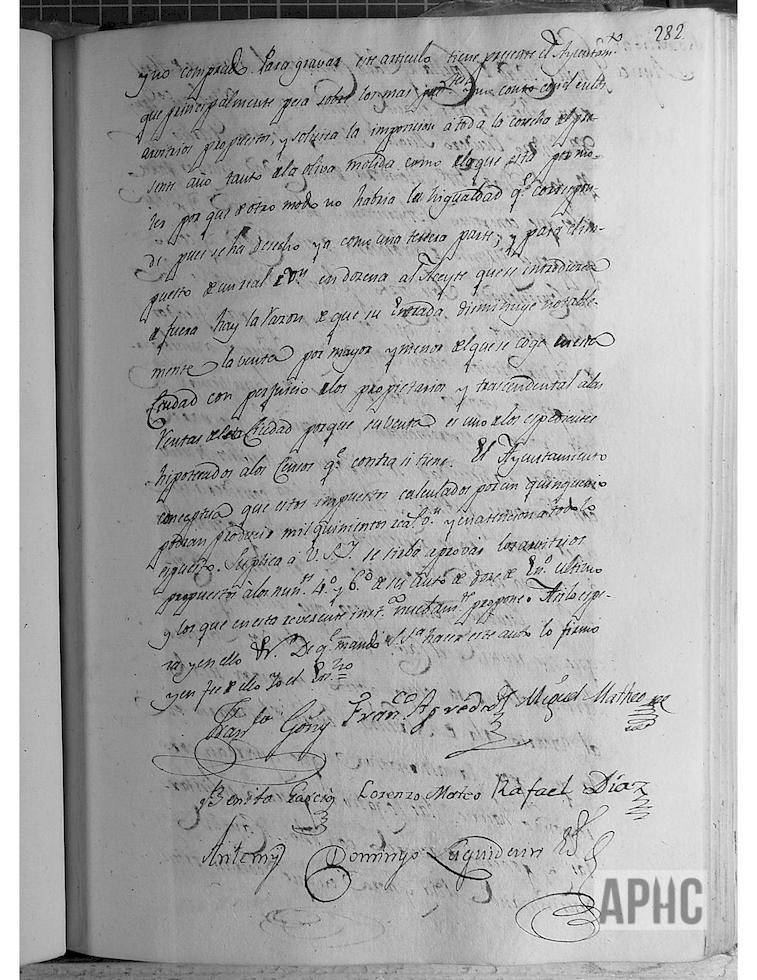 282
y vino comprado. Para gravar este articulo tiene presente el Ayuntam.to
que principalmente pesa sobre los mas que contribuien con los
arvitrios propuestos, y solicita la imposicion à toda la cosecha del pre-
sente año tanto de la oliva molida como de la que está por mo-
ler por que de otro modo no habria la higualdad q.e correspon-
de pues se ha desecho ya como una tercera parte; y para el im-
puesto de un real de v.n en dozena al Aceyte que se introduzca
de fuera hay la razon de que su entrada disminuye notable-
mente la venta por mayor y menor del que se coge en esta
Ciudad con perjuicio de los propietarios y trascendental a las
Rentas de la Ciudad porque su venta es uno de los espedientes
hipotecados à los Censos q.e contra si tiene. El Ayuntamiento
conceptua que estos impuestos calculados por un quinquenio
podran producir mil quinientos real.s v.n y en atencion a todo lo
espuesto. Suplica à V.S.I. se sirba aprovar los arvitrios
propuestos à los num.s 4.o y 6.o de su auto de doze de En.o ultimo
y los que en esta reverente inst.a nuebam.te propone. Asi lo espe-
ra y en ello De q.e mandó S.S.a hacer este auto lo firmó
y en fee de ello Yo el Esn.o
Goñy Fran.co Agreda Miguel Matheo
Benito Garcia Lorenzo Mateo Rafael Díaz
Antemi Domingo Luquidain
APHC